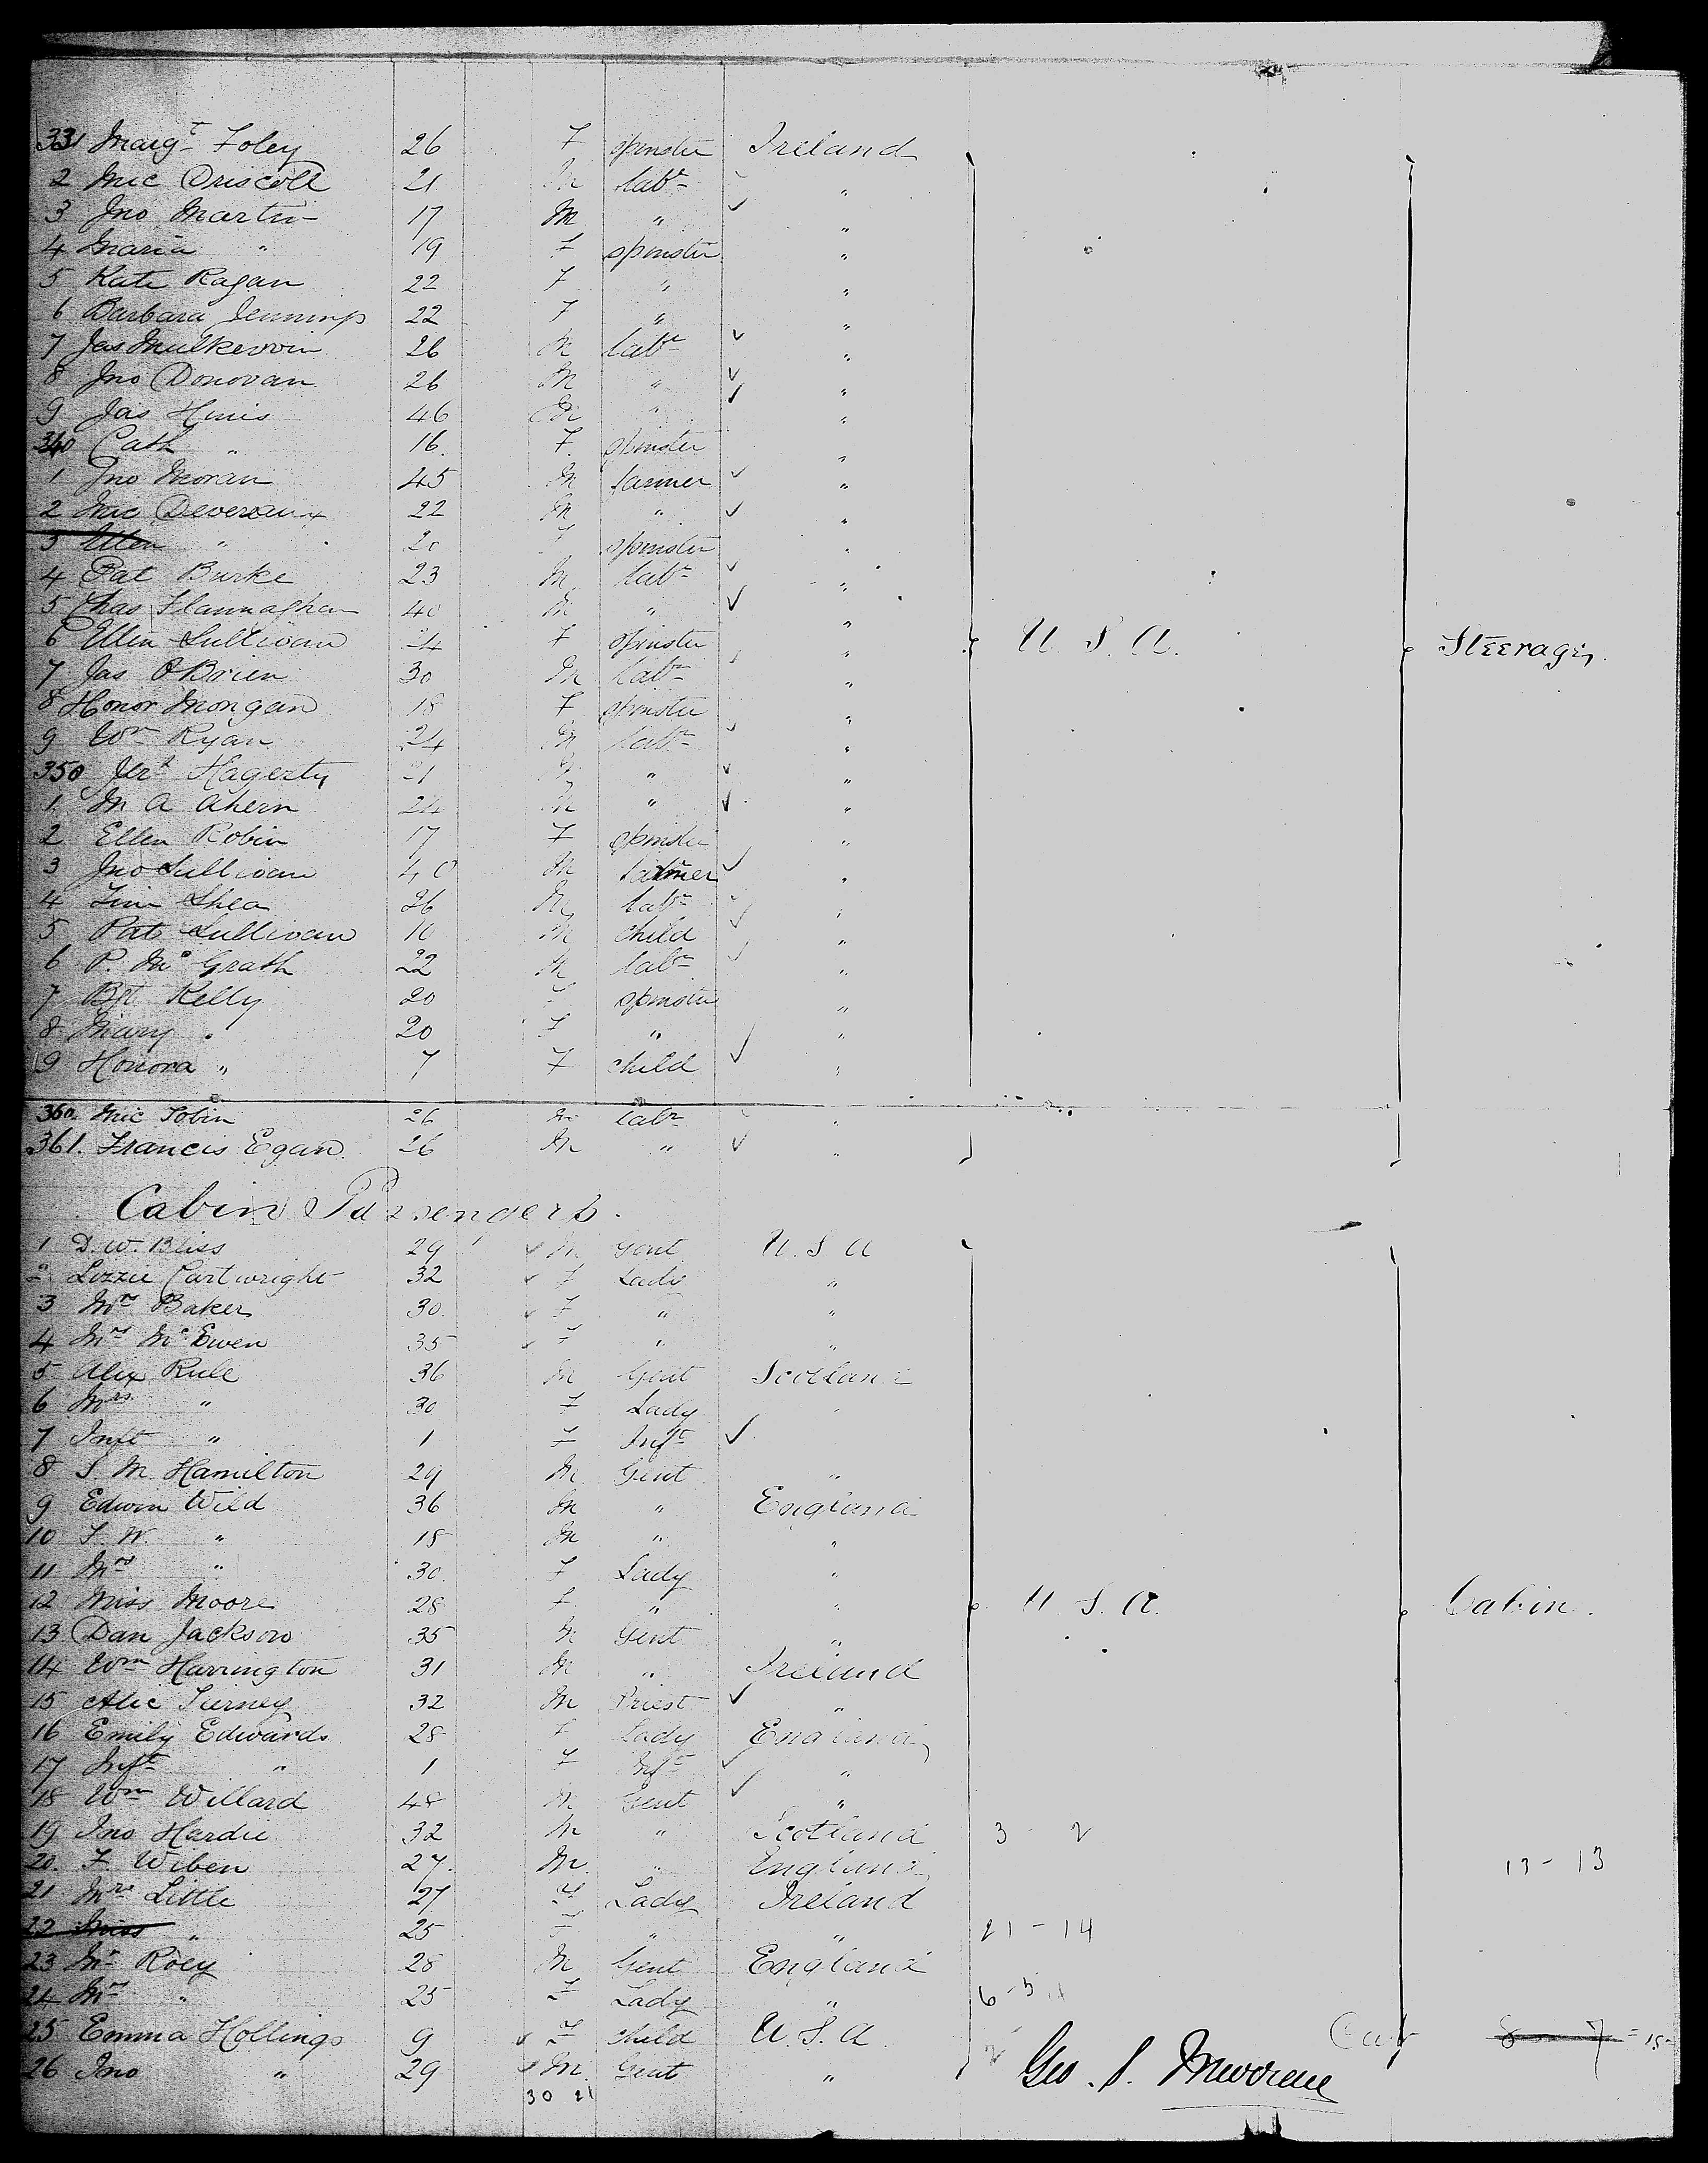 331 Margt Foley 26 F spinster Ireland
2 Mic Driscoll 21 M labr "
3 Jno Martin 17 M " "
4 Maria " 19 F spinster "
5 Kate Ragan 22 F " "
6 Barbara Jennings 22 F " "
7 Jas Mulkerrin 26 M labr "
8 Jno Donovan 26 M " "
9 Jas Hinis 46 M " "
340 Cath " 16. F. spinster "
1 Jno Moran 45 M farmer "
2 Mic Devereaux 22 M " "
3 Ellen " 20 F spinster "
4 Pat Burke 23 M labr "
5 Chas Flannaghan 40 M " "
6 Ellen Sullivan 24 F spinster " U. S. A. Steerage
7 Jas OBrien 30 M labr "
8 Honor Mongan 18 F spinster "
9 Wm Ryan 24 M labr "
350 Hagerty 21 M " "
1. M A Ahern 24 M " "
2 Ellen Robin 17 F spinster "
3 Jno Sullivan 40 M farmer "
4 Tim Shea 26 M labr "
5 Pat Sullivan 10 M child "
6 P. Mc Grath 22 M labr "
7 Bgt Kelly 20 F spinster "
8 Mary " 20 F " "
9 Honora " 7 F child "
360. Mic Tobin 26 M labr "
361. Francis Egan. 26 M " "
Cabin Passengers.
1 D. W. Bliss 29 M Gent U. S. A
2 Lizzie Cartwright 32 F Lady "
3 Mrs Baker 30. F " "
4 Mrs McEwen 35 F " "
5 Alex Rule 36 M Gent Scotland
6 Mrs " 30 F Lady "
7 Inft " 1 F Inft
8 S. M. Hamilton 29 M Gent "
9 Edwin Wild 36 M " England
10 " 18 M " "
11 Mrs " 30. F Lady "
12 Miss Moore 28 F " " U. S. A. Cabin.
13 Dan Jackson 35 M Gent "
14 Wm Harrington 31 M " Ireland
15 Alic Tierney 32 M Priest "
16 Emily Edwards 28 F Lady England
17 Inft " 1 F Inft "
18 Wm Willard 48 M Gent "
19 Jno Hardie 32 M " Scotland 3 - 2
20. F Wiben 27. M. " England 13 - 13
21 Mrs Little 27 F Lady Ireland
22 Miss " 25 F " " 21 - 14
23 Mr Roey 28 M Gent England
24 Mrs " 25 F Lady " 6 - 5
25 Emma Hollings 9 F child U. S. A. Cab 8 7 = 15
26 Jno " 29 M. Gent "
30 21